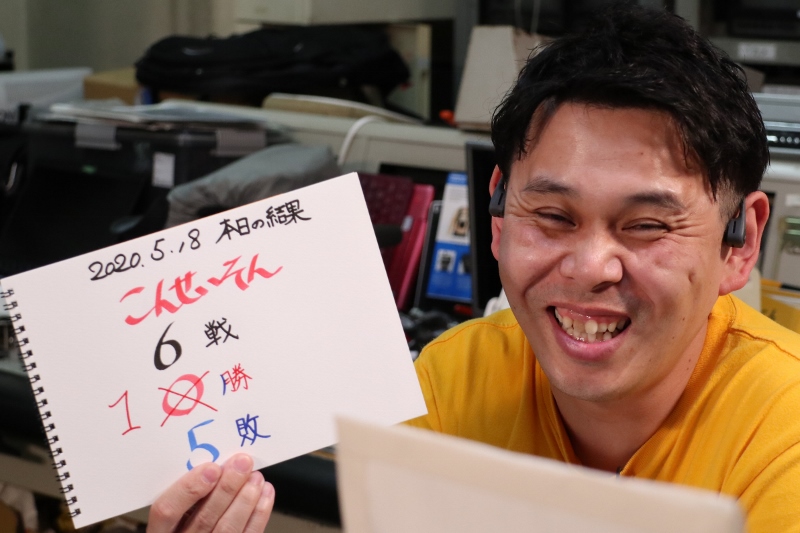 2020.5.18 本日の結果
こんせいそん
6 戦
1 0 勝
5 敗